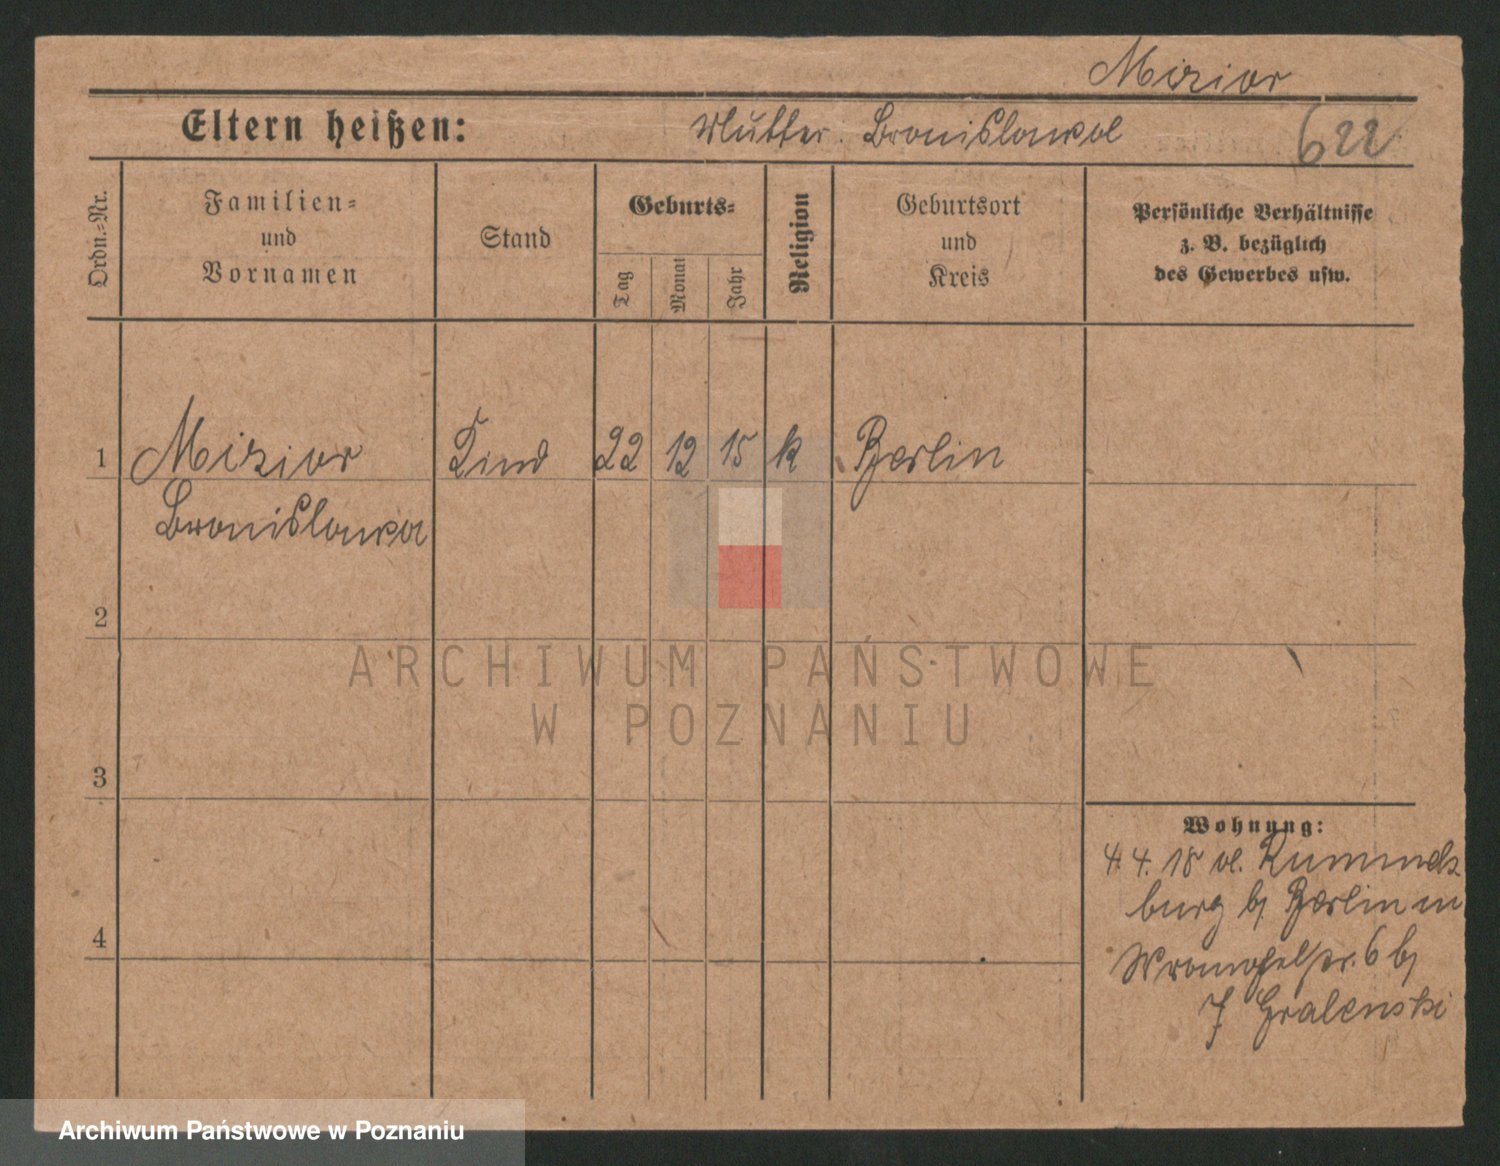 Mizior
Eltern heißen: Mutter: Bronislawa
622
Ordn.-Nr.
Familien-
und
Vornamen
Stand
Geburts-
Tag
Monat
Jahr
Religion
Geburtsort
und
Kreis
Persönliche Verhältnisse
z. B. bezüglich
des Gewerbes usw.
1 Mizior Kind 22 12 15 k Berlin
Bronislawa
2
ARCHIWUM PAŃSTWOWE
W POZNANIU
3
4
Wohnung:
4. 4. 18 Rummels
burg b/ Berlin
Wrangelstr. 6 b/
J Gralenski
Archiwum Państwowe w Poznaniu